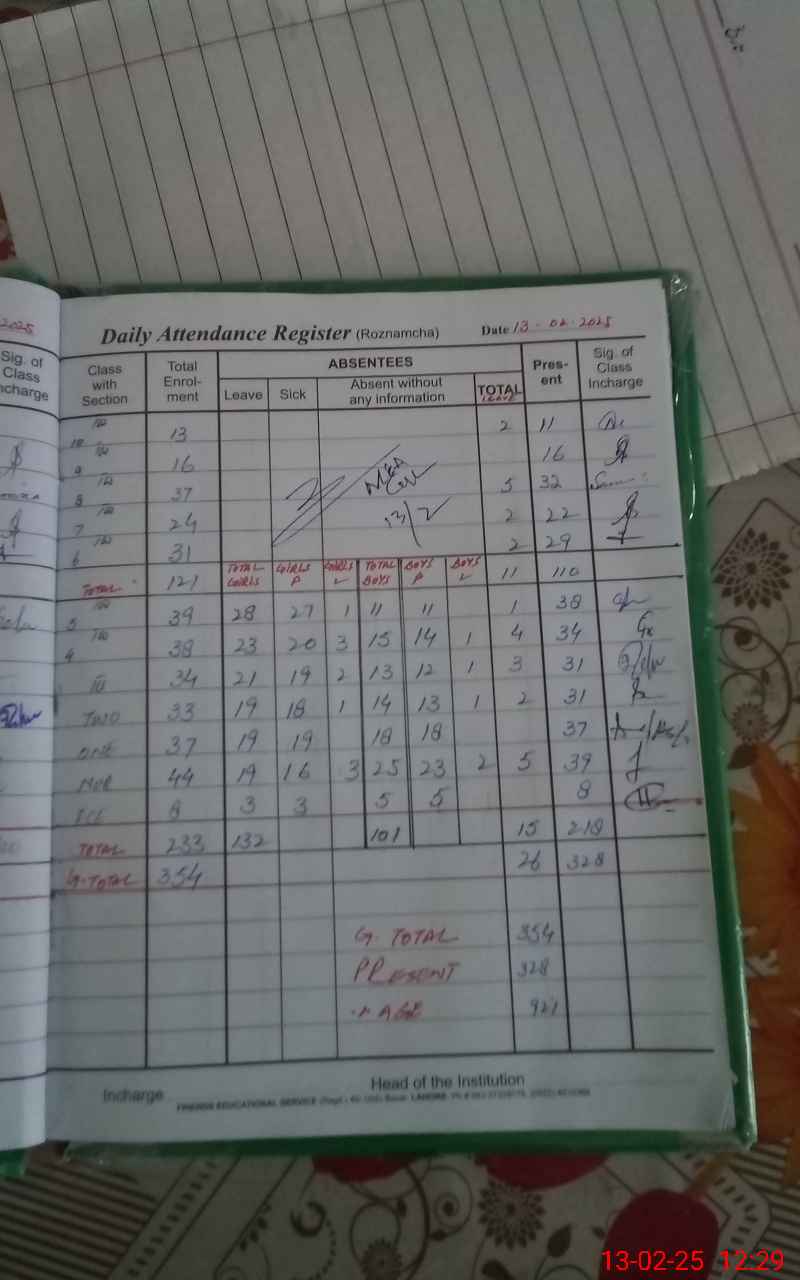 2025
Sig. of
Class
ncharge
Daily Attendance Register (Roznamcha) Date 13-02-2025
Class with Section Total Enrol-ment ABSENTEES Pres-ent Sig. of Class Incharge
Leave Sick Absent without any information TOTAL LEAVE
10 TH 13 2 11
9 TH 16 16
8 TH 37 5 32
7 TH 24 2 22
6 TH 31 2 29
13/2
TOTAL 121 TOTAL GIRLS GIRLS P GIRLS L TOTAL BOYS BOYS P BOYS L 11 110
5 TH 39 28 27 1 11 11 1 38
4 TH 38 23 20 3 15 14 1 4 34
III 34 21 19 2 13 12 1 3 31
TWO 33 19 18 1 14 13 1 2 31
ONE 37 19 19 18 18 37
NUR 44 19 16 3 25 23 2 5 39
ECE 8 3 3 5 5 8
TOTAL 233 132 101 15 218
G.TOTAL 354 26 328
G. TOTAL 354
PRESENT 328
% AGE 92%
Incharge Head of the Institution
13-02-25 12:29